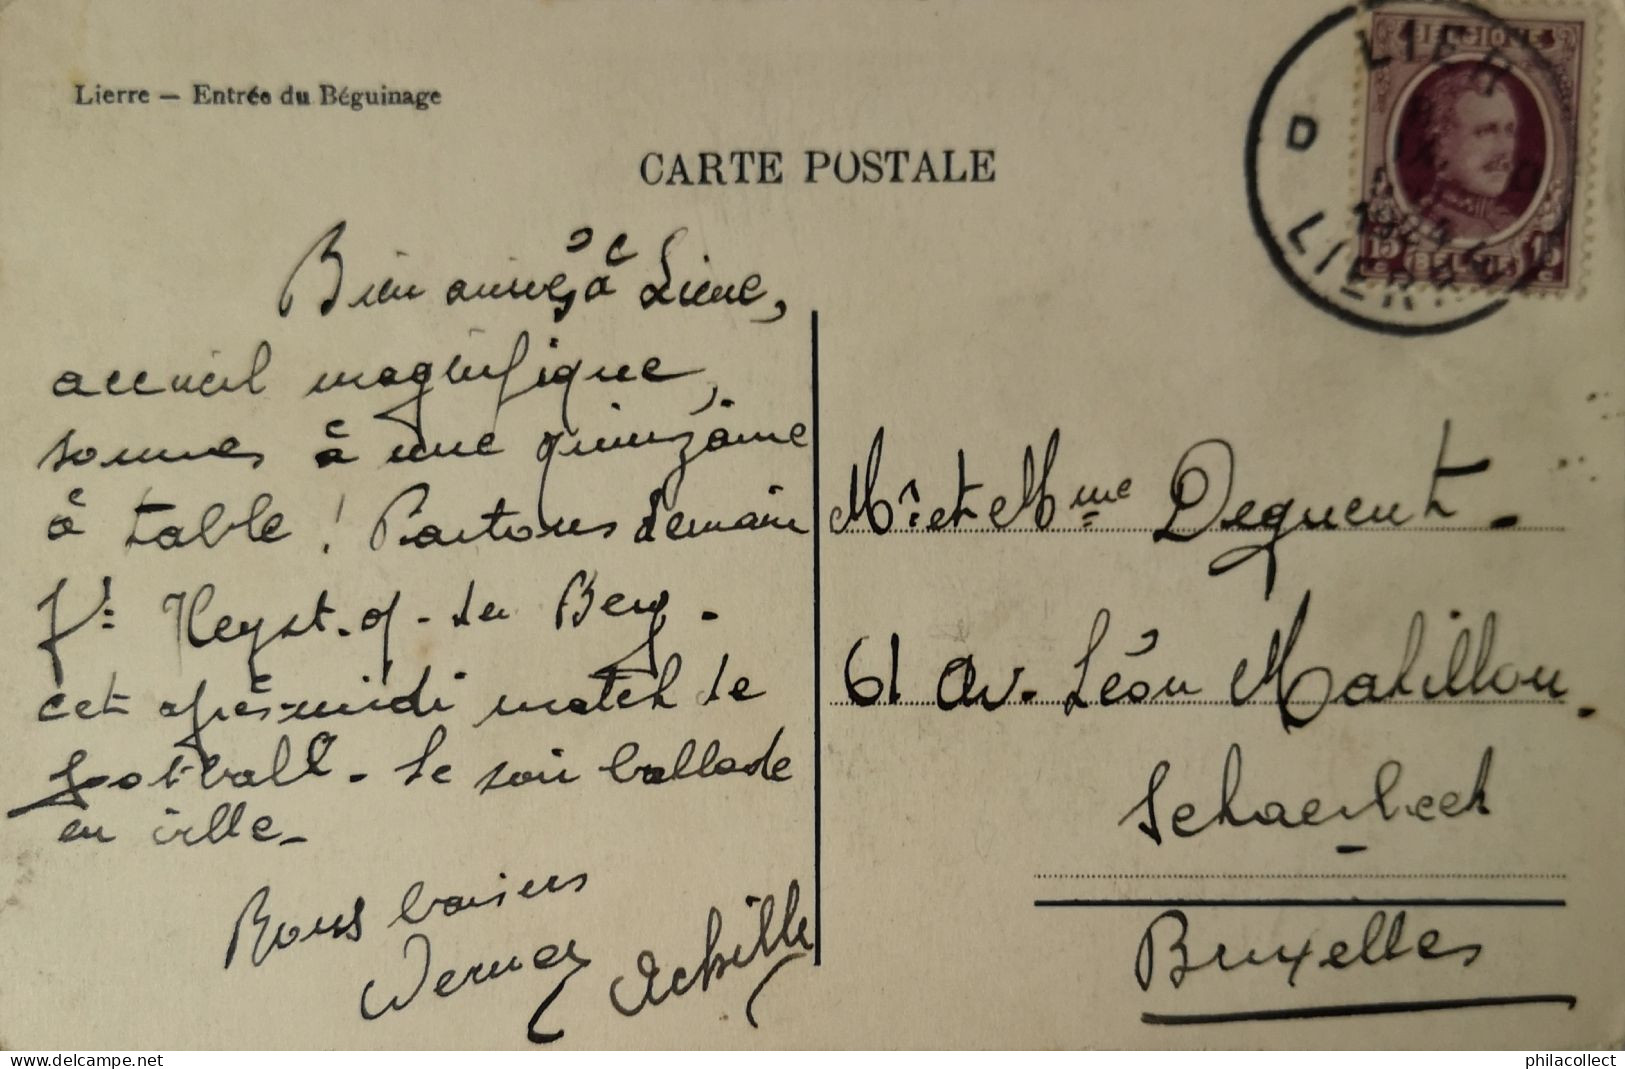 Lierre — Entrée du Béguinage
CARTE POSTALE
Bien arrivés à Lierre,
accueil magnifique,
sommes à une quinzaine
à table ! Partons demain
Heyst-o-den Berg.
cet après-midi match de
foot-ball. Le soir ballade
en ville
Bons baisers
Achille
Mr. et Mme Dequent.
61 Av. Léon Mahillon.
Schaerbeek
Bruxelles
BELGIQUE
15
BELGIE
LIER
D
LIERRE
www.delcampe.net
philacollect